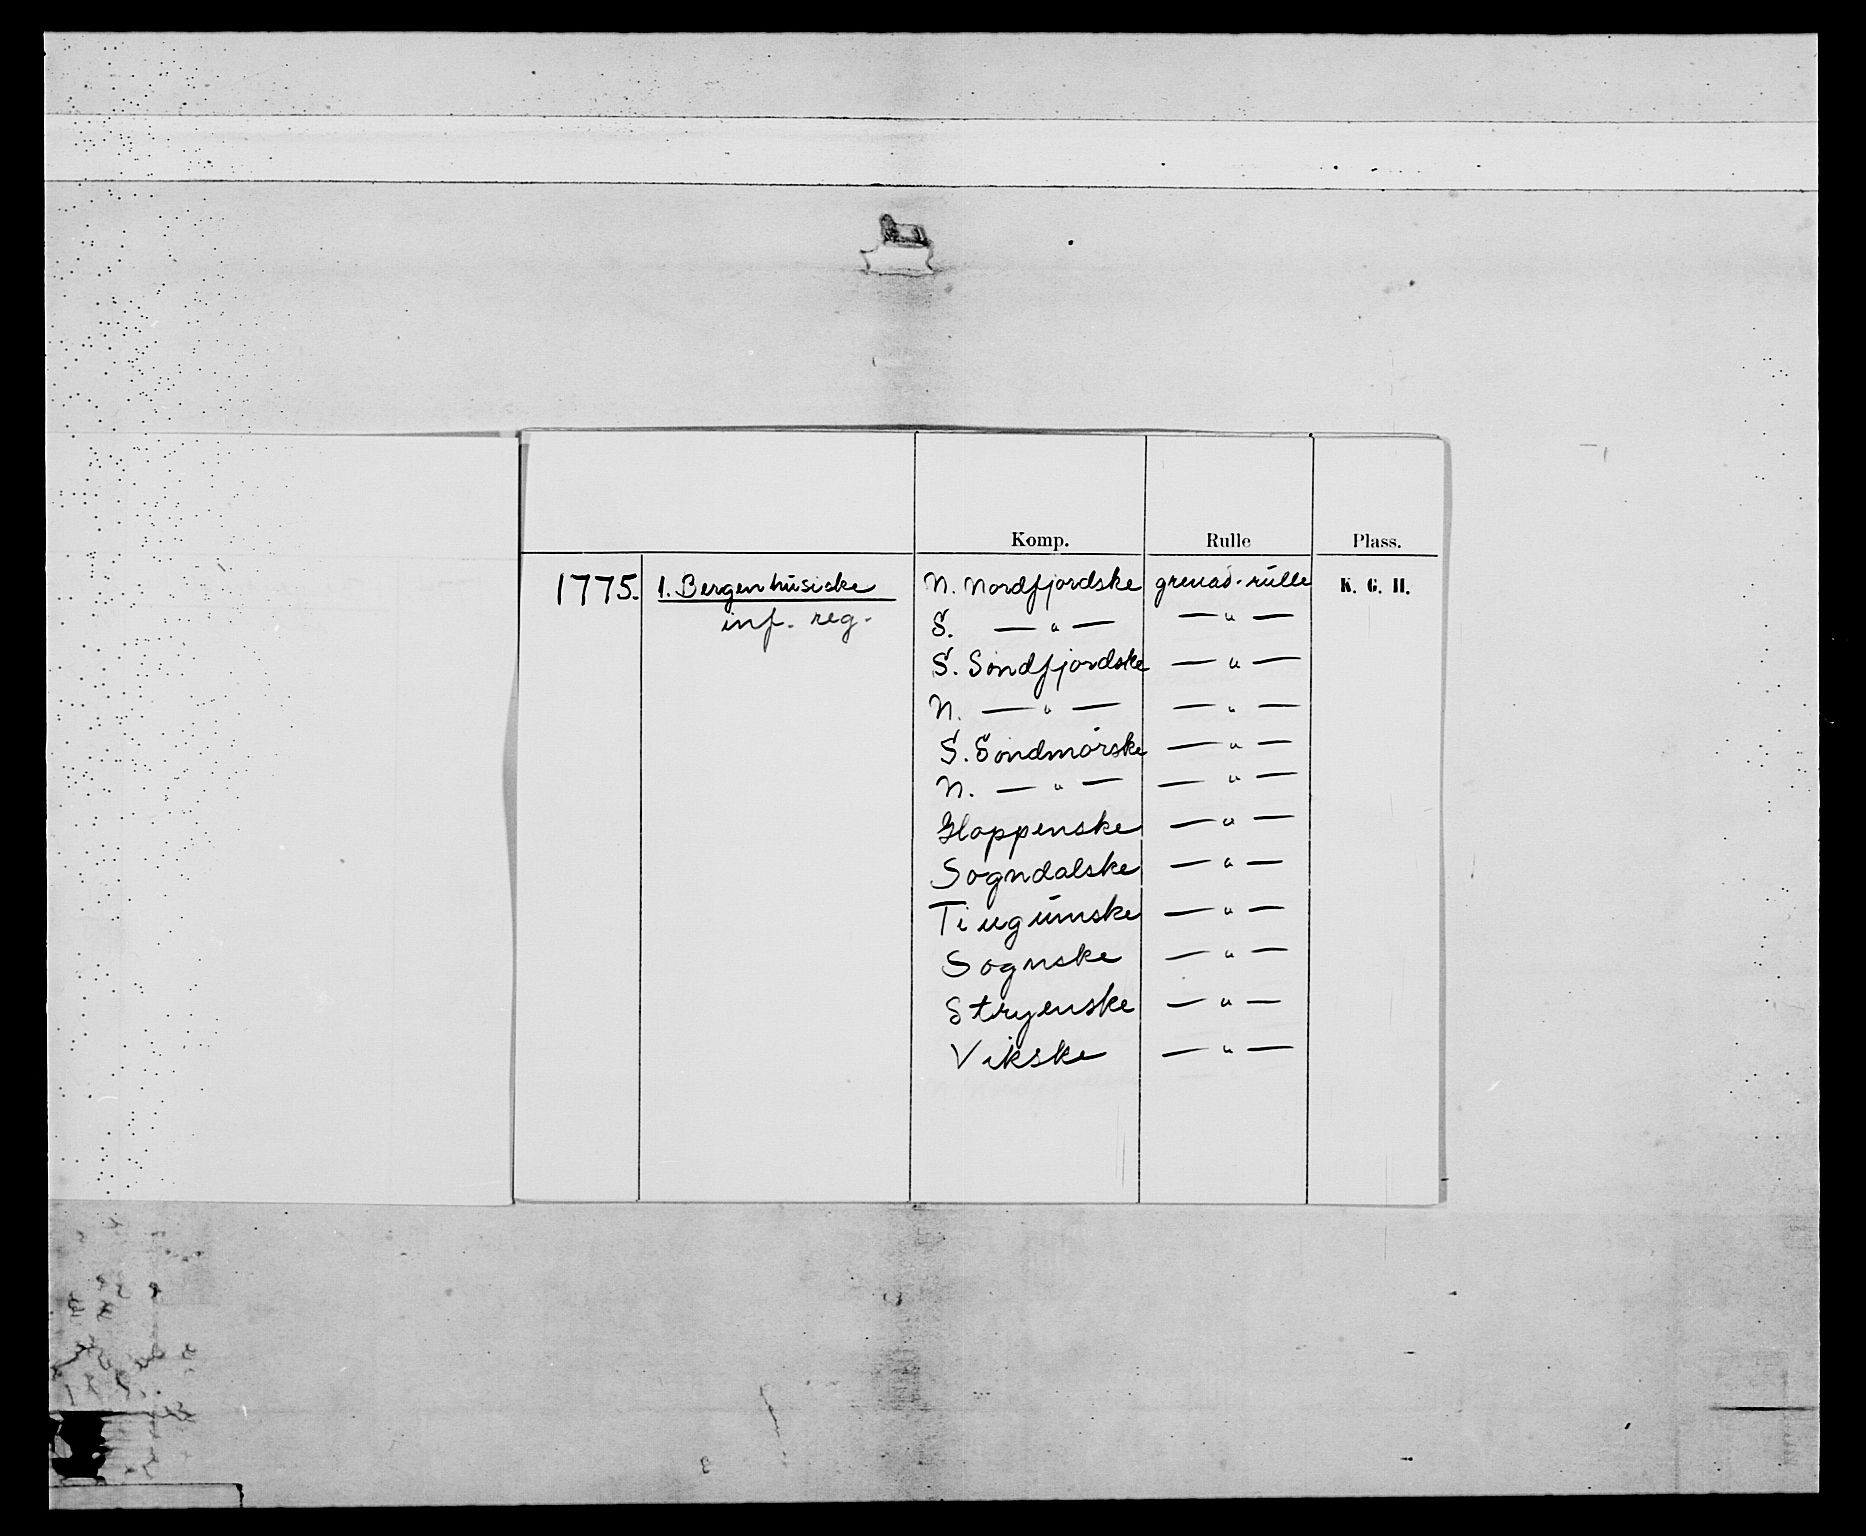 Komp. Rulle Plass.
1775. 1. Bergenhusiske N. Nordfjordske grenad.-rulle K. G. H.
inf. reg. S. — " — — " —
S. Søndfjordske — " —
N. — " — — " —
S. Søndmørske — " —
N. — " — — " —
Gloppenske — " —
Sogndalske — " —
Tiugumske — " —
Sognske — " —
Stryenske — " —
Vikske — " —